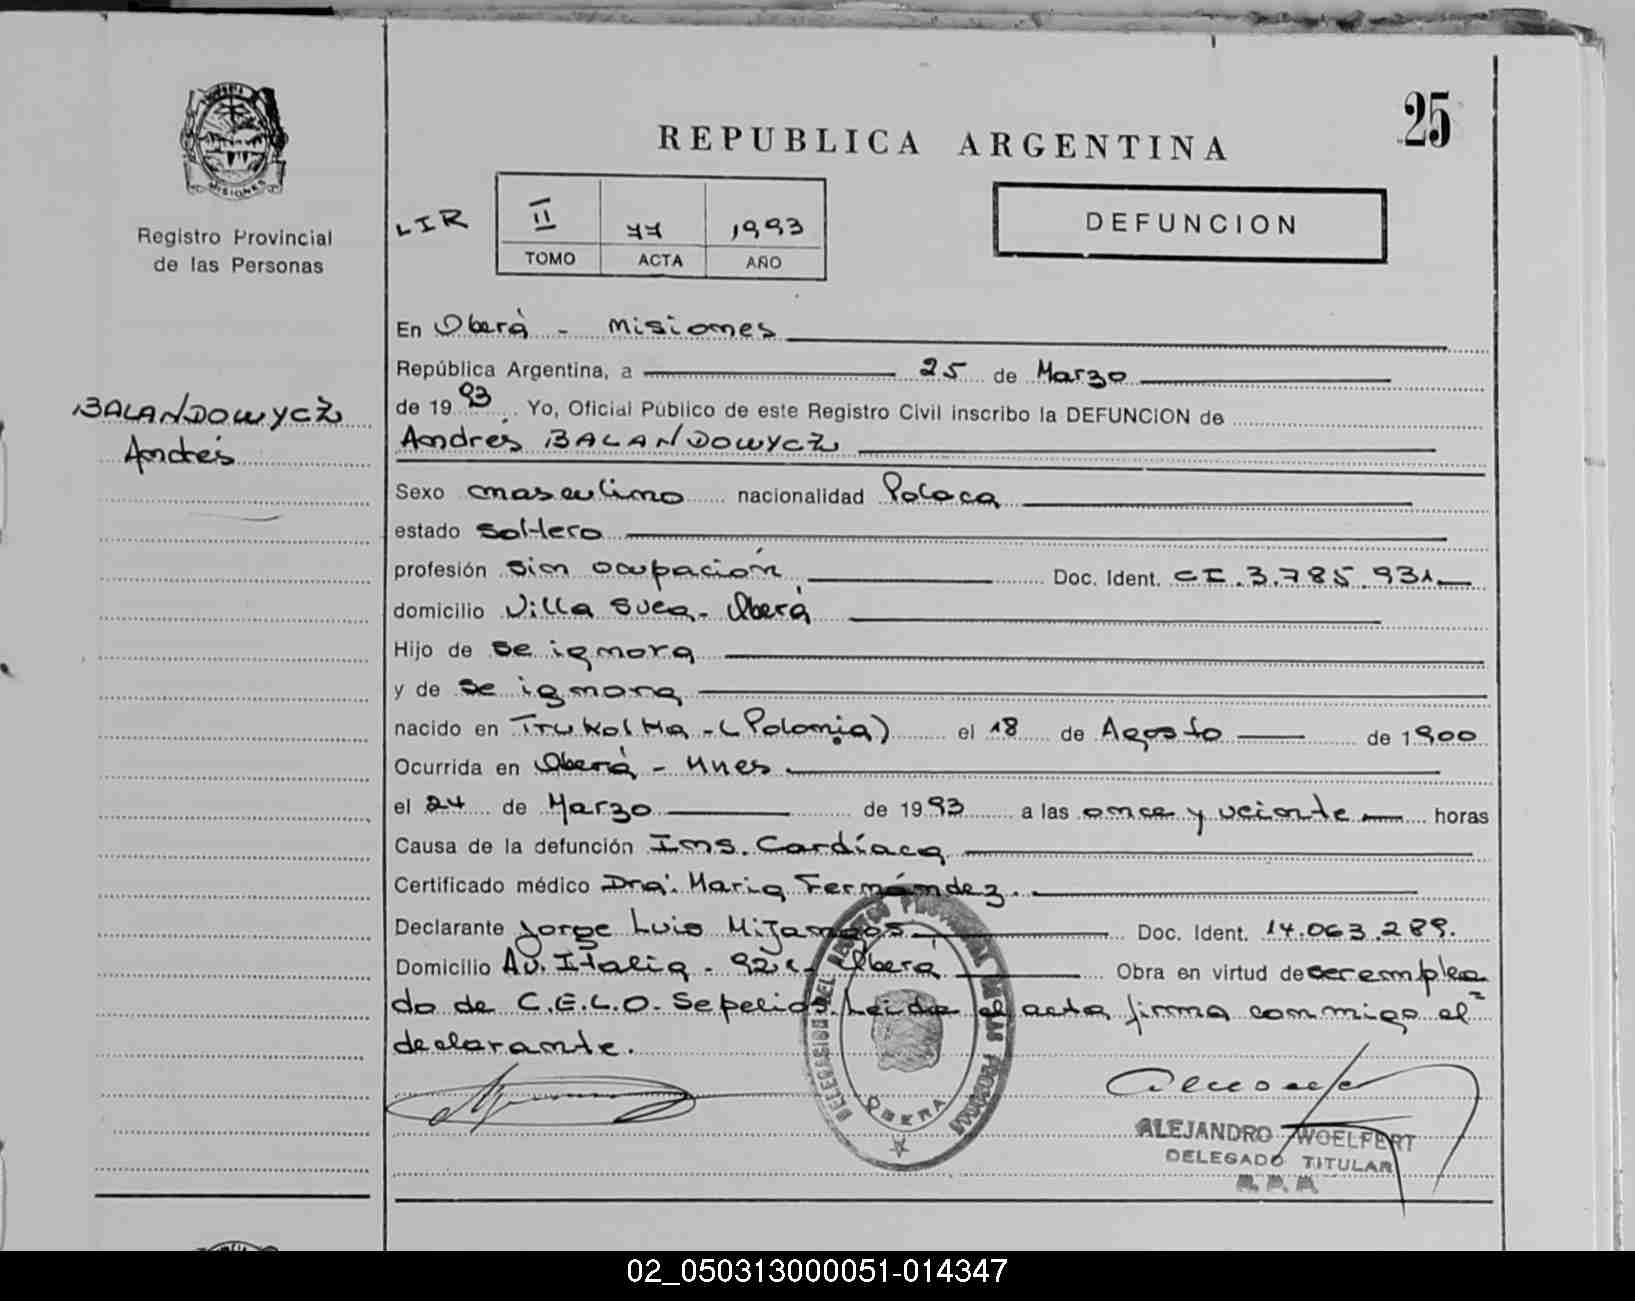 25
REPUBLICA ARGENTINA
MISIONES
Registro Provincial
de las Personas
LIR
II 77 1993
TOMO ACTA AÑO
DEFUNCION
BALANDOWYCZ
Andrés
En Oberá - Misiones
República Argentina, a 25 de Marzo
de 1993 Yo, Oficial Público de este Registro Civil inscribo la DEFUNCION de
Andrés BALANDOWYCZ
Sexo masculino nacionalidad Polaca
estado soltero
profesión sin ocupación Doc. Ident. CI.3.785.931
domicilio Villa Svea - Oberá
Hijo de se ignora
y de se ignora
nacido en (Polonia) el 18 de Agosto de 1900
Ocurrida en Oberá - Mnes
el 24 de Marzo de 1993 a las once y veinte horas
Causa de la defunción Ins. Cardíaca
Certificado médico Dra. Maria Fernández.
Declarante Jorge Luis Mijangos Doc. Ident. 14.063.289.
Domicilio Av. Italia - Oberá Obra en virtud de ser emplea
do de C.E.L.O. Sepelios. Leida el acta firma conmigo el=
declarante.
DELEGACION DEL REGISTRO PROVINCIAL DE LAS PERSONAS
OBERA
ALEJANDRO WOELFERT
DELEGADO TITULAR
R. P. P.
02_050313000051-014347